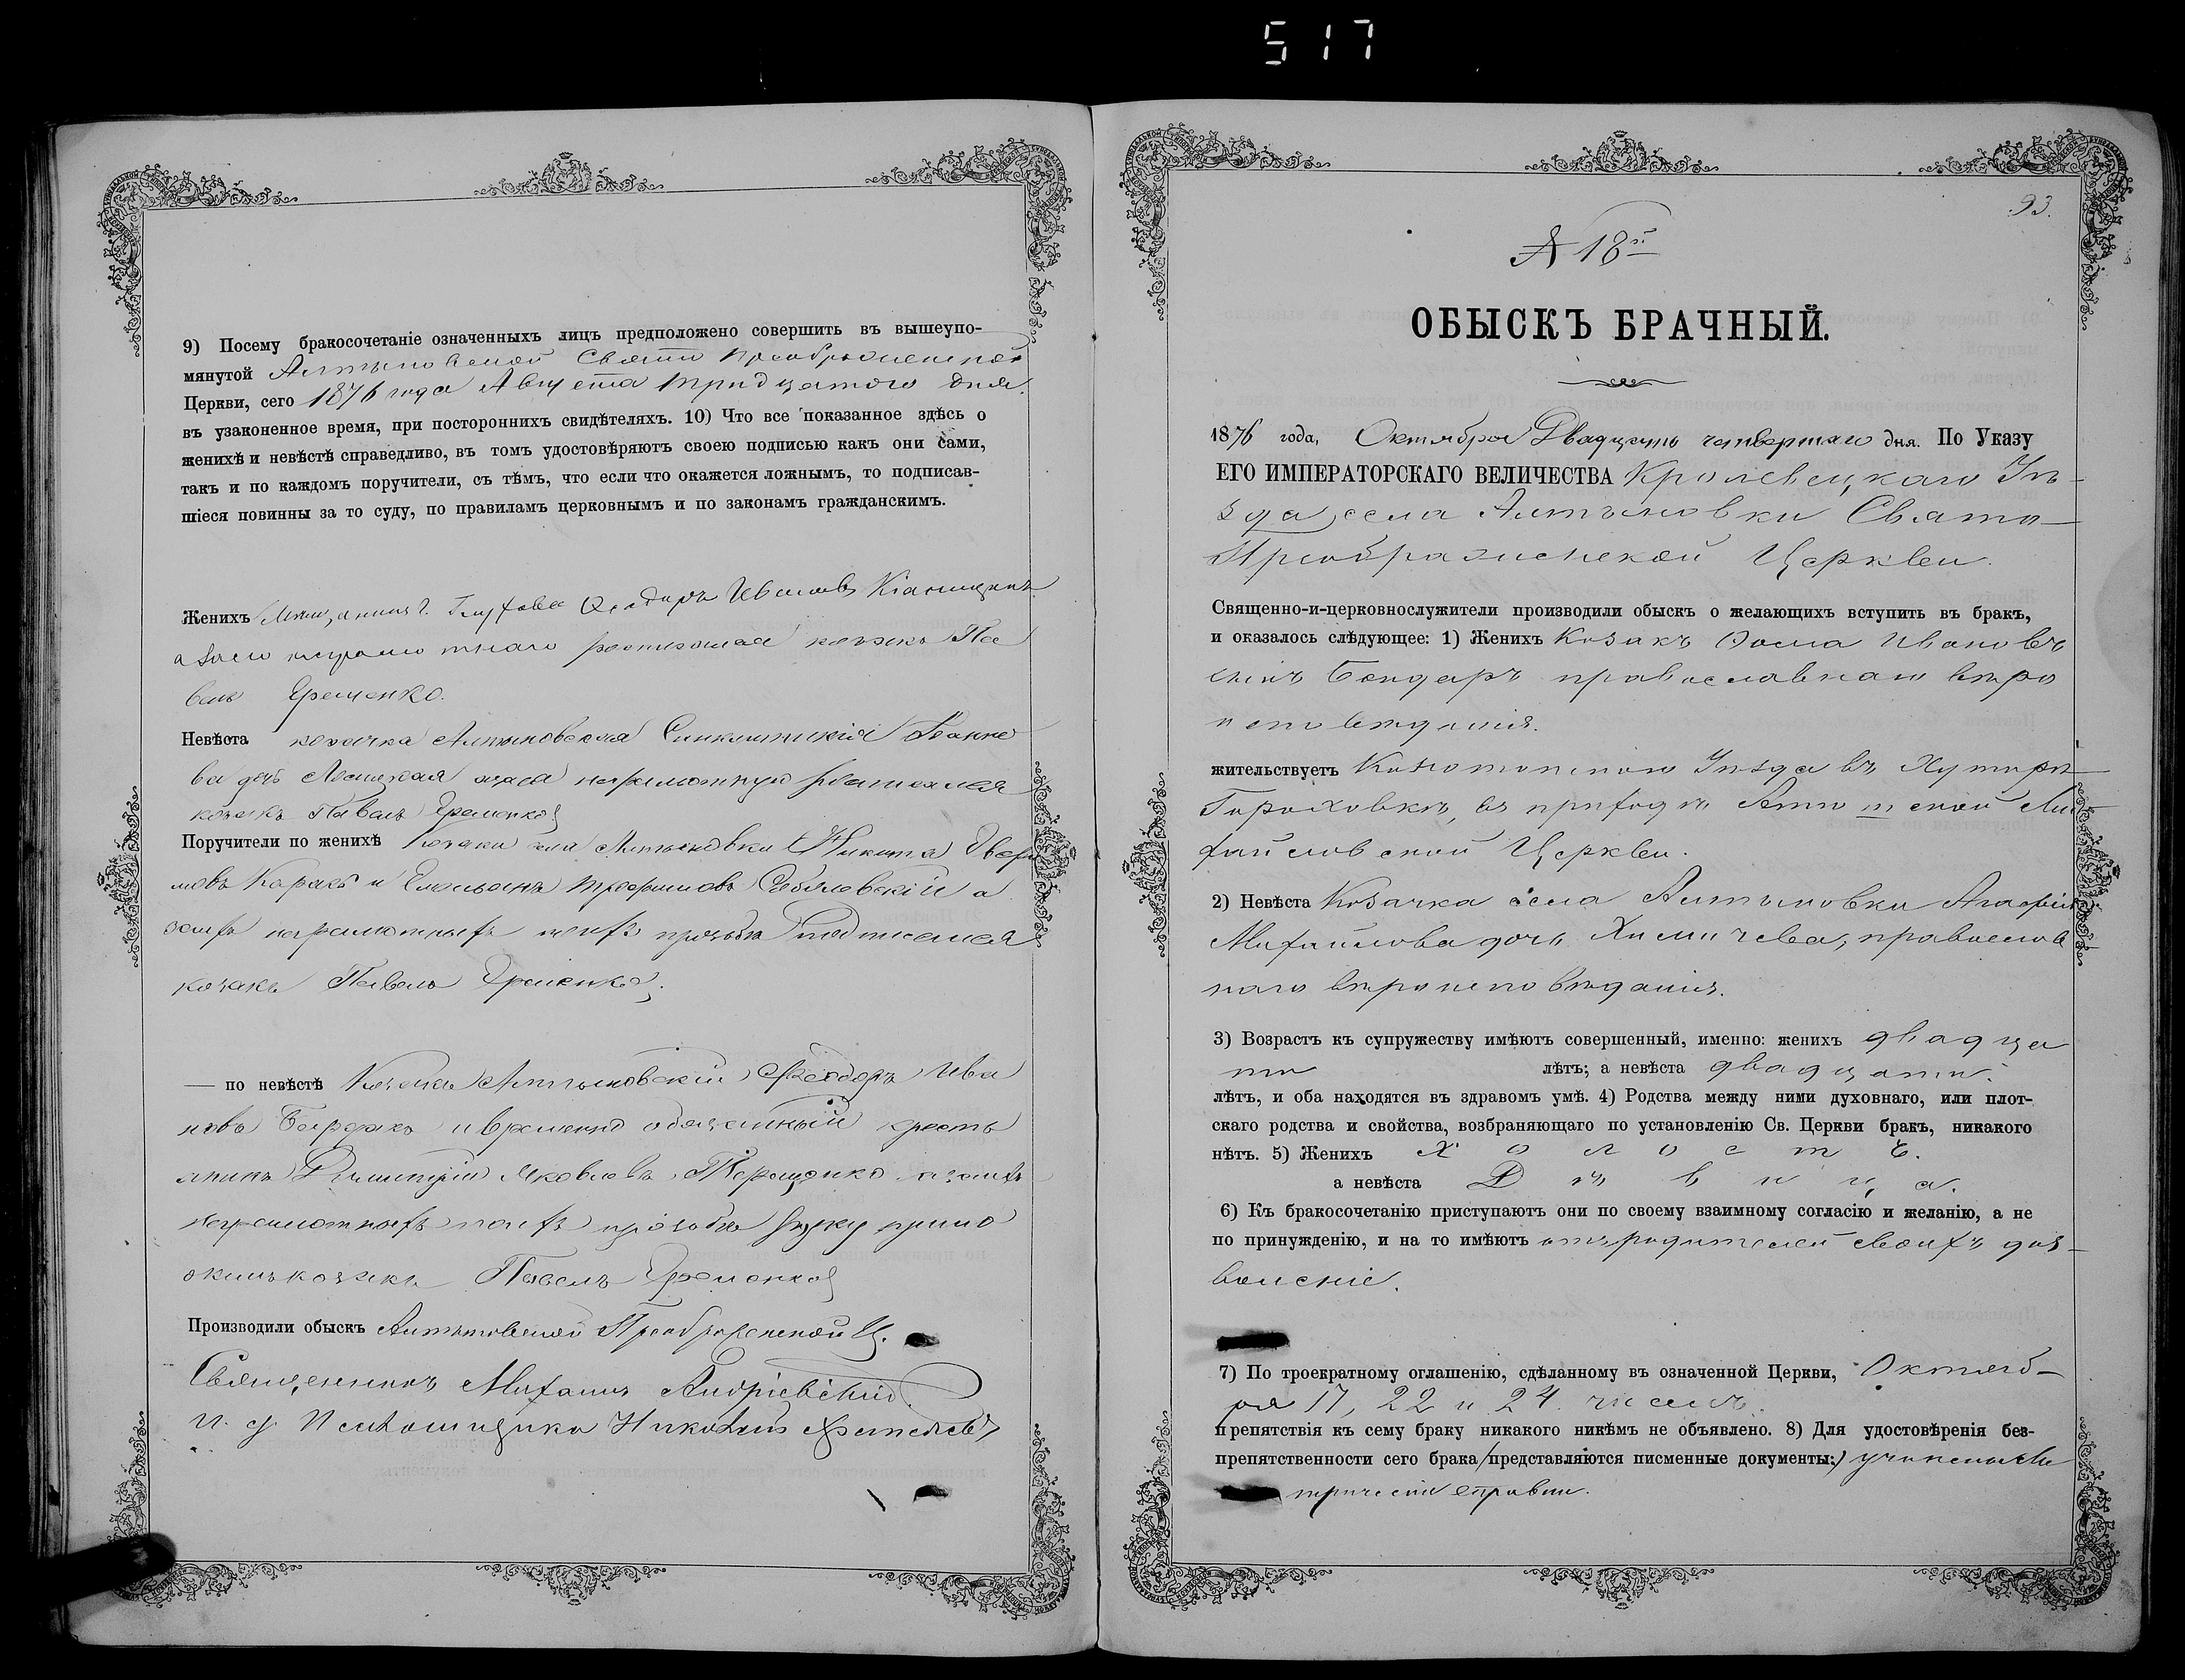 517
9) Посему бракосочетаніе означенныхъ лицъ предположено совершить въ вышеупо-
мянутой Алтыновской Свято Преображенской
Церкви, сего 1876 года Августа тридцатого дня.
въ узаконенное время, при постороннихъ свидѣтеляхъ. 10) Что все показанное здѣсь о
женихѣ и невѣстѣ справедливо, въ томъ удостовѣряютъ своею подписью какъ они сами,
такъ и по каждомъ поручители, съ тѣмъ, что если что окажется ложнымъ, то подписав-
шіеся повинны за то суду, по правиламъ церковнымъ и по законамъ гражданскимъ.
Женихъ Мѣщанинъ г. Глухова Ѳеодоръ Ивановъ
неграмотнаго росписался козакъ Па
велъ Ерещенко.
Невѣста козачка Алтыновская Синклитикія
ва дочь неграмотную
козакъ Павелъ
Поручители по женихѣ Козаки села Алтыновки Никита
новъ и Емельянъ Трофимовъ а
неграмотныхъ прозьбѣ подписался
козакъ Павелъ
— по невѣстѣ Козакъ Алтыновскій Феодоръ Ива
новъ и временно обязанный кресть
янинъ Димитрій Яковлевъ Терещенко
неграмотныхъ прозьбѣ руку прило
жилъ козакъ Павелъ
Производили обыскъ Алтыновской Преображенской Ц.
Священникъ Михаилъ Андріевскій
и. д. Псаломщика Николай
93.
№ 18й
ОБЫСКЪ БРАЧНЫЙ.
1876 года, Октября Двадцать четвертаго дня. По Указу
ЕГО ИМПЕРАТОРСКАГО ВЕЛИЧЕСТВА Кролевецкаго Уѣ-
зда, села Алтыновки Свято-
Преображенской Церкви.
Священно-и-церковнослужители производили обыскъ о желающихъ вступить въ бракъ,
и оказалось слѣдующее: 1) Женихъ Козакъ Фома Ивановъ
сынъ Бондарь православнаго вѣро
исповѣданія.
жительствуетъ Конотопского Уѣзда въ Хуторѣ
Гороховкѣ, въ приходѣ Ми-
хайловской Церкви.
2) Невѣста Козачка села Алтыновки Агафія
Михайлова дочь Химичева, православ-
наго вѣроисповѣданія.
3) Возрастъ къ супружеству имѣютъ совершенный, именно: женихъ двадца
ти лѣтъ; а невѣста двадцати.
лѣтъ, и оба находятся въ здравомъ умѣ. 4) Родства между ними духовнаго, или плот-
скаго родства и свойства, возбраняющаго по установленію Св. Церкви бракъ, никакого
нѣтъ. 5) Женихъ Холостъ.
а невѣста Дѣвица.
6) Къ бракосочетанію приступаютъ они по своему взаимному согласію и желанію, а не
по принужденію, и на то имѣютъ отъ родителей своихъ доз-
воленіе.
7) По троекратному оглашенію, сдѣланному въ означенной Церкви, Октяб-
ря 17, 22 и 24. числъ.
препятствія къ сему браку никакого никѣмъ не объявлено. 8) Для удостовѣренія без-
препятственности сего брака представляются писменные документы: учинены Ме
трическіи справки.